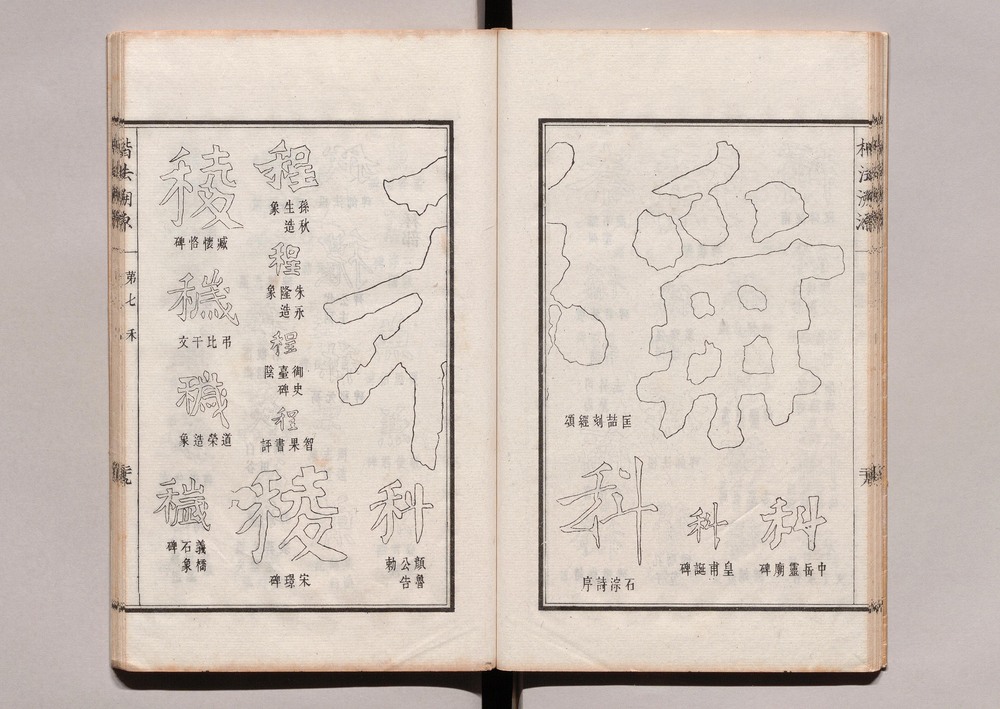 楷法溯源
匡喆刻經頌
科
中岳靈廟碑
科
皇甫誕碑
科
石淙詩序
科
顏魯公告勅
程
孫秋生造象
程
朱永隆造象
程
御史臺碑陰
程
智果書評
稜
宋璟碑
稜
臧懷恪碑
弔比干文
道榮造象
義橋石象碑
楷法溯源
第七 禾